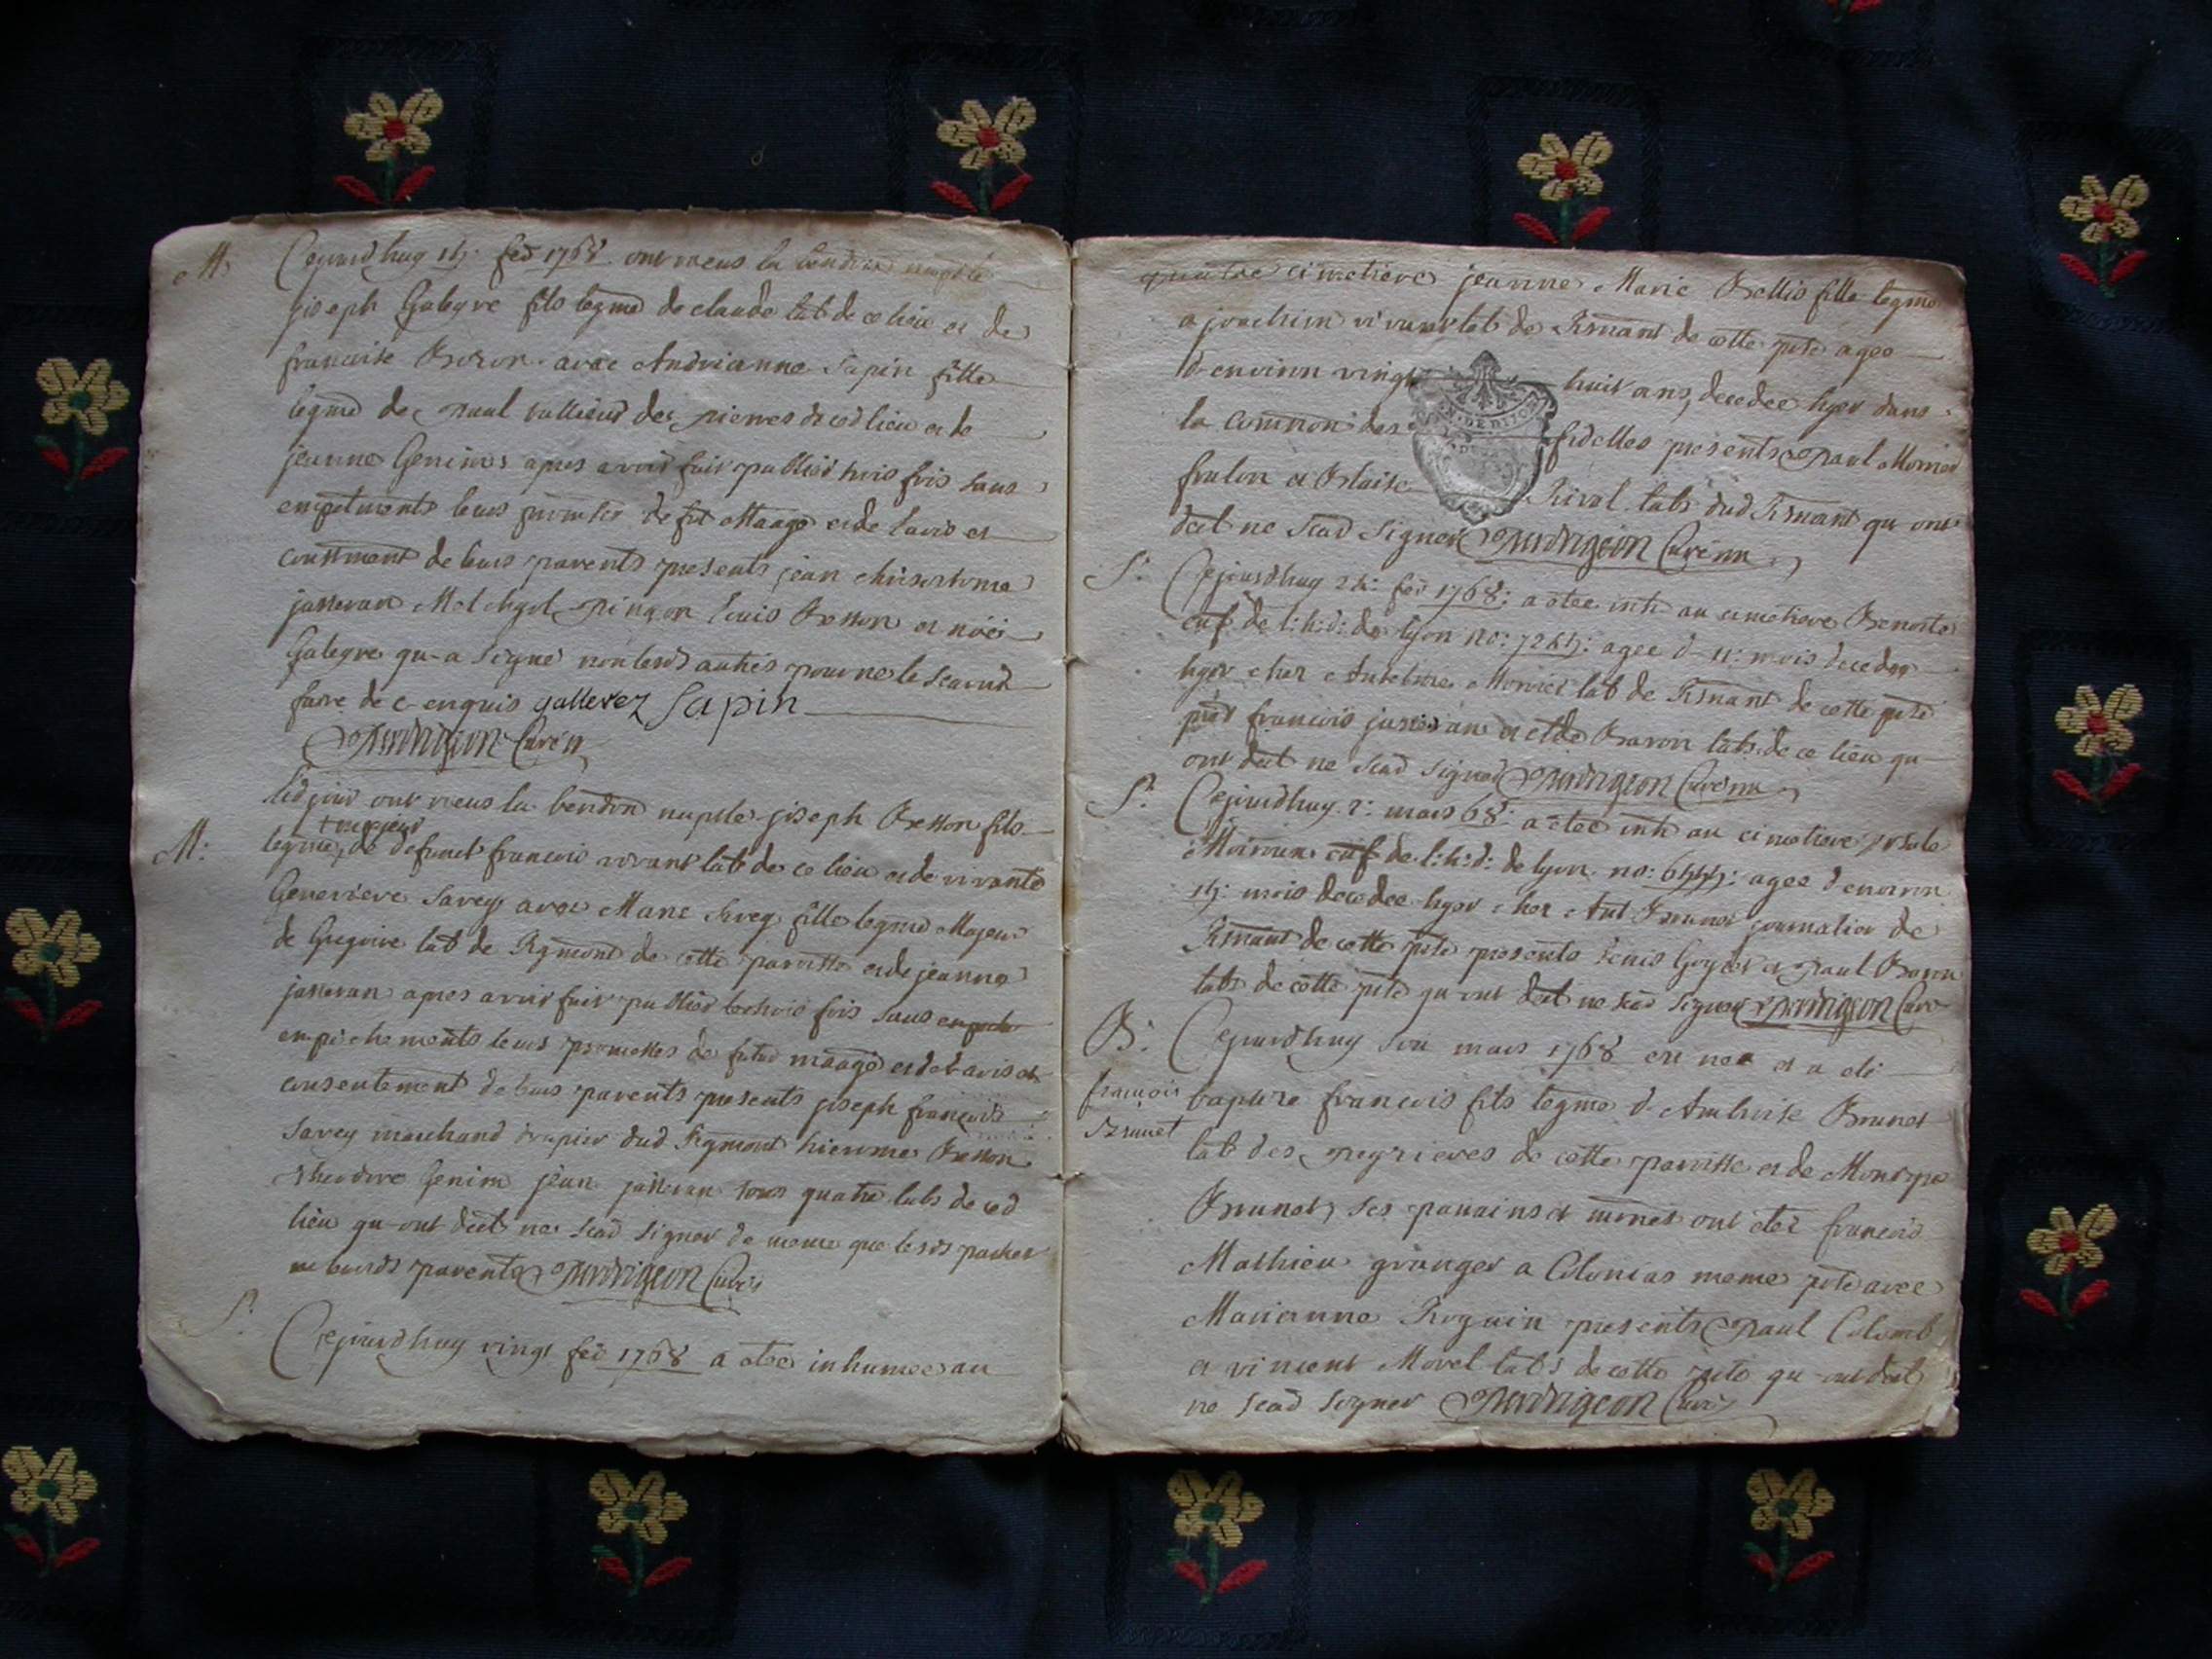 M:
Cejourdhuy 1
fev 1768 ont receus la benidon nuptle
joseph Galleyre fils legme de claude lab de ce lieu et de
francoise Boron avec Andrianne Sapin fille
legme de paul tallieur des pierres de ced lieu et de
jeanne Genim apres avoir fait publier trois fois sans
empetments leurs promeses de fut Maage et de lavis et
consentment de leurs parents presents jean chrisostome
jasseran Melchyol pingon louis Besson et noël
Galeyre qu-a signé non lesds autres pour ne le scavoir
faire de c- enquis gallerez Sapin
Perdrigeon Curé
Led jour ont receus la bendon nuptle joseph Besson fils
majeur
M:
legme de defunct francois vivant lab de ce lieu et de vivante
Genevieve Savey avec Marie Savey fille legme Majeur
de Gregoire lab de Rigmont de cette paroisse et de jeanne
jasseran apres avoir fait publier trois fois sans
empechements leurs promesses de futur maage et de l avis et
consentement de leurs parents presents joseph francois
Savey marchand drapier dud Rigmont hierome Besson
theodore Genim jean jasseran tous quatre labs de ced
lieu qu-ont decl ne scav signer de meme que lesds parties
ni leursds parents Perdrigeon Curé
S:
Cejourdhuy vingt fev 1768 a etee inhumee au
cimetiere jeanne Marie Bellis fille legme
a joachim vivant lab de Rimant de cette psse agee
d-environ vingt huit ans, decedee hyer dans
la Commion des fidelles presents paul Mornier
foulon et Blaise Rival labs dud Rimant qu ont
decl ne scav signer Perdrigeon Curé
S:
Cejourdhuy 24: fev 1768: a etee inh au cimetiere Benoite
enf de l: h: d: de lyon no: agee d- 11: mois decedee
hyer chez Antelme Monier lab de Rimant de cette psse
pnts francois jasseran et Baron labs de ce lieu qu
ont decl ne scav signer Perdrigeon Curé
S:
Cejourdhuy 2: mars 68: a etee inh au cimetiere
enf de l: h: d: de lyon no: agee d environ
mois decedee hyer chez Ant Brunet journalier de
Rimant de cette psse presents Goyet et paul Baron
labs de cette psse qu ont decl ne scav signer Perdrigeon Curé
B:
Cejourdhuy mars 1768 est nee et a eté
francois
Brunet
baptize francois fils legme d- Ambroise Brunet
lab des de cette paroisse et de
Brunet, ses parrains et ont eté francois
Mathieu granger a Colonias meme psse avec
Marianne Roguin presents paul Colomb
et vincent Morel labs de cette psse qu-ont decl
ne scav signer Perdrigeon Curé